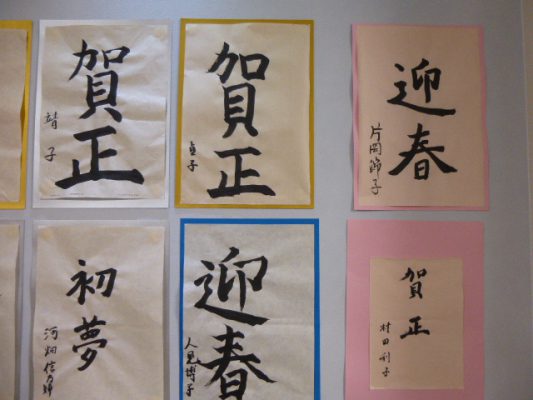 賀正
靖子
賀正
貞子
迎春
片岡節子
初夢
河畑信乃
迎春
人見博子
賀正
村田利子